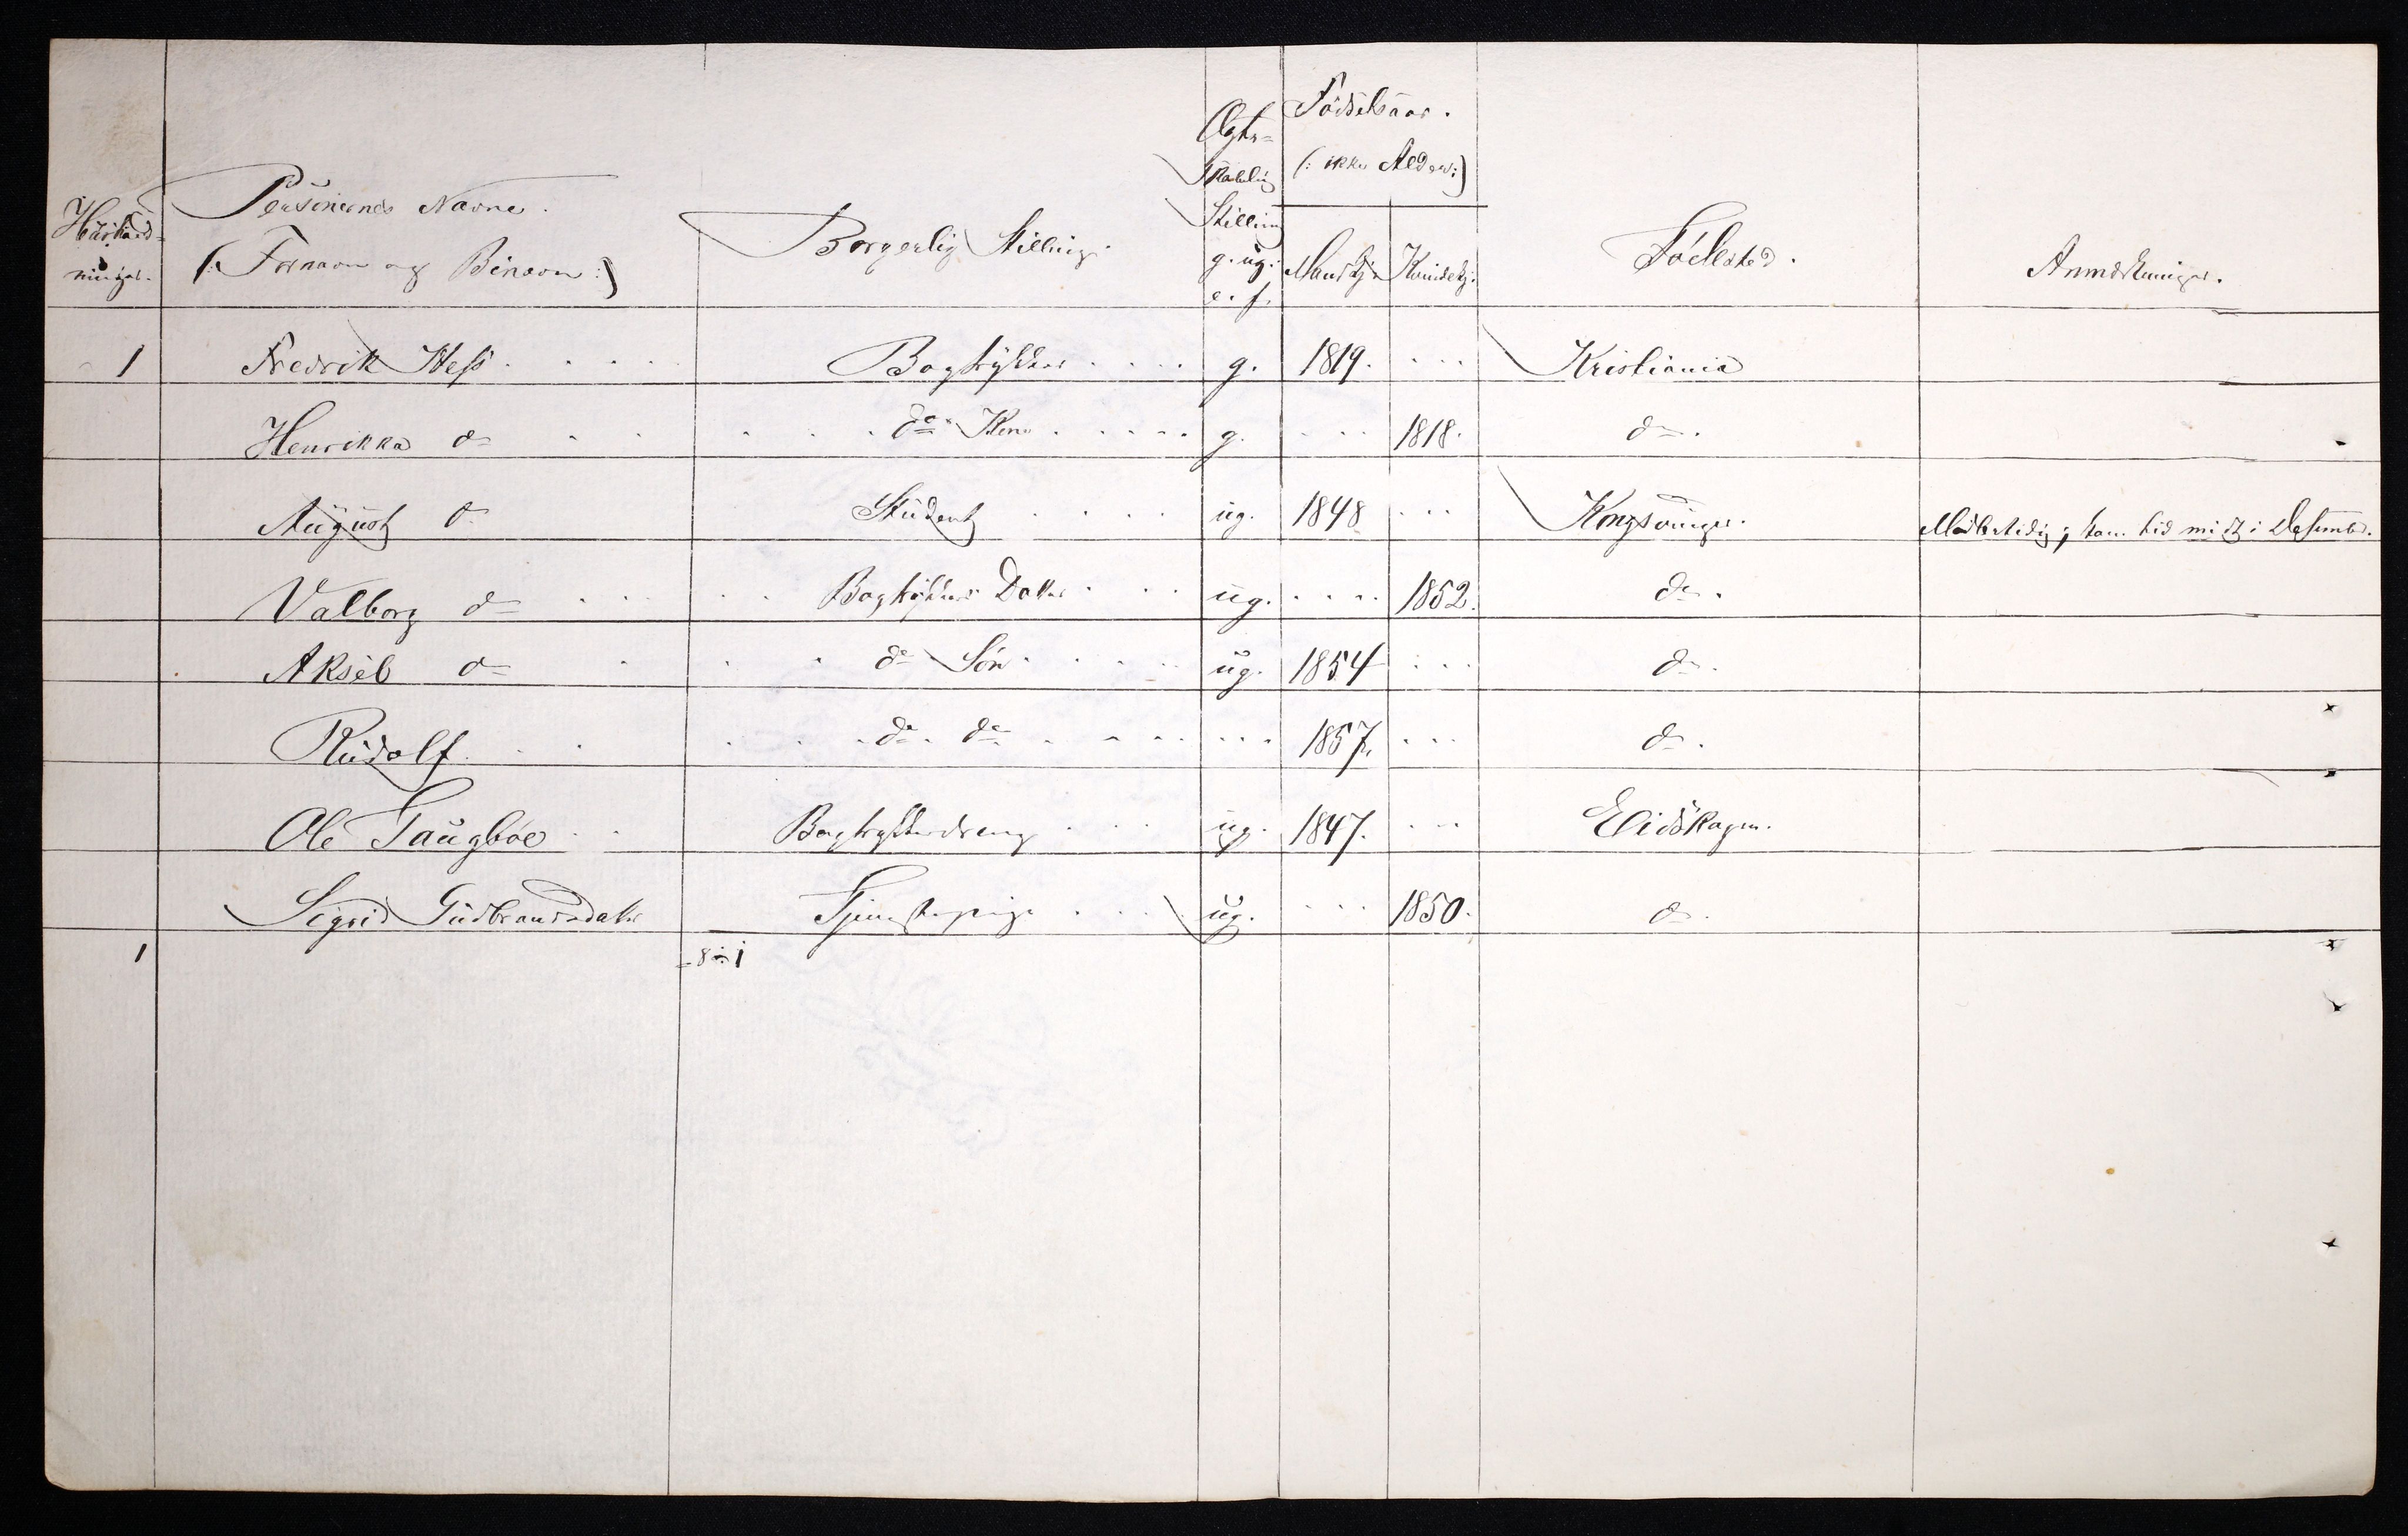 Hüshold-
ninger.
Personernes Navne.
(: Fornavn og Binavn :)
Borgerlig Stilling.
Ægte-
skabelig
Stilling
g. üg.
e. f.
Födselsaar.
(: ikke Alder :)
Mandkj. Kvindekj.
Födested.
Anmærkninger.
1 Fredrik Hess . . . . Bogtrykker . . . . g. 1819. . . . Kristiania
Henrikka do . . . . . do Kone . . . . . g. . . . 1818. do.
August do Stüdent . . . . üg. 1848 . . . Kongsvinger. Midlertidig; kom hid midt i Desember.
Valborg do . . . . . Bogtrykkers Datter . . . üg. . . . . 1852. do.
Aksel do . . . . do Sön . . . . üg. 1854 . . . do.
Rüdolf . . . . . do. do . . . . . . . 1857. . . . do.
Ole Taugböe . . Bogtrykkerdreng . . . üg. 1847. . . . Eidskogen.
Sigrid Gudbrandsdatter Tjenestepige . . . . üg. . . . 1850. do.
1 8 ÷ 1